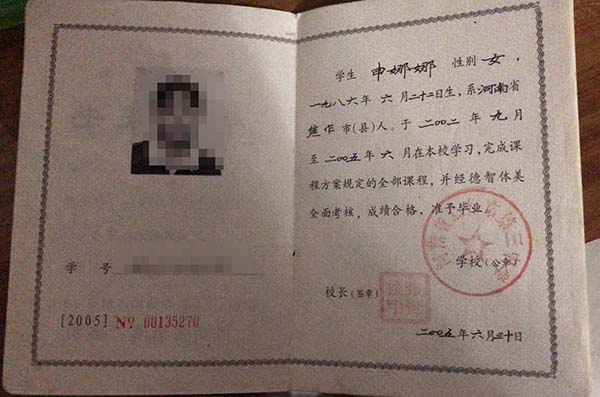 学号
[2005] № 00135270
学生 申娜娜 性别 女，
一九八六年 六月二十二日生，系河南省
焦作市(县)人。于二〇〇二年九月
至二〇〇五年六月在本校学习，完成课
程方案规定的全部课程，并经德智体美
全面考核，成绩合格，准予毕业
学校(公章)
校长(签章)
二〇〇五年六月三十日